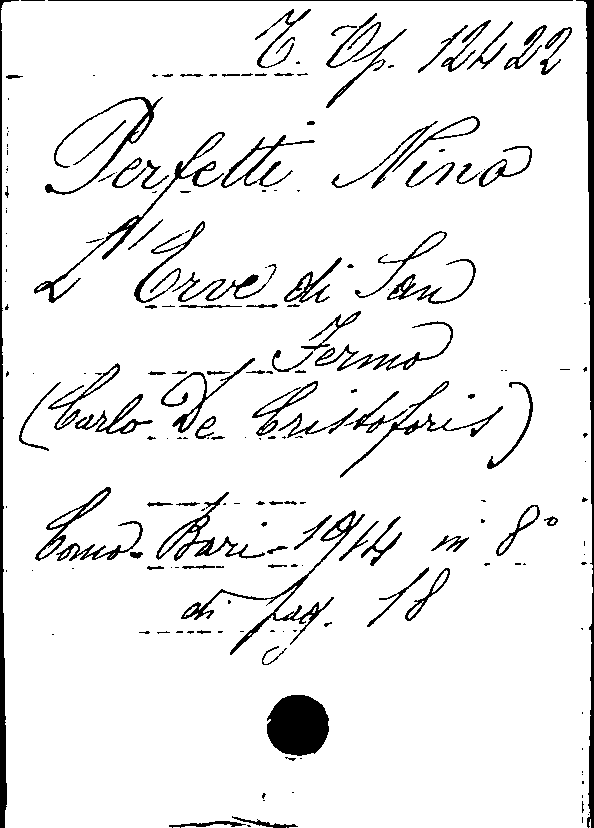 T. Op. 12422
Perfetti Nino
L'Erve di San
Fermo
(Carlo De Cristoforis)
Como - Bari - 1914 in 8°
di pag. 18